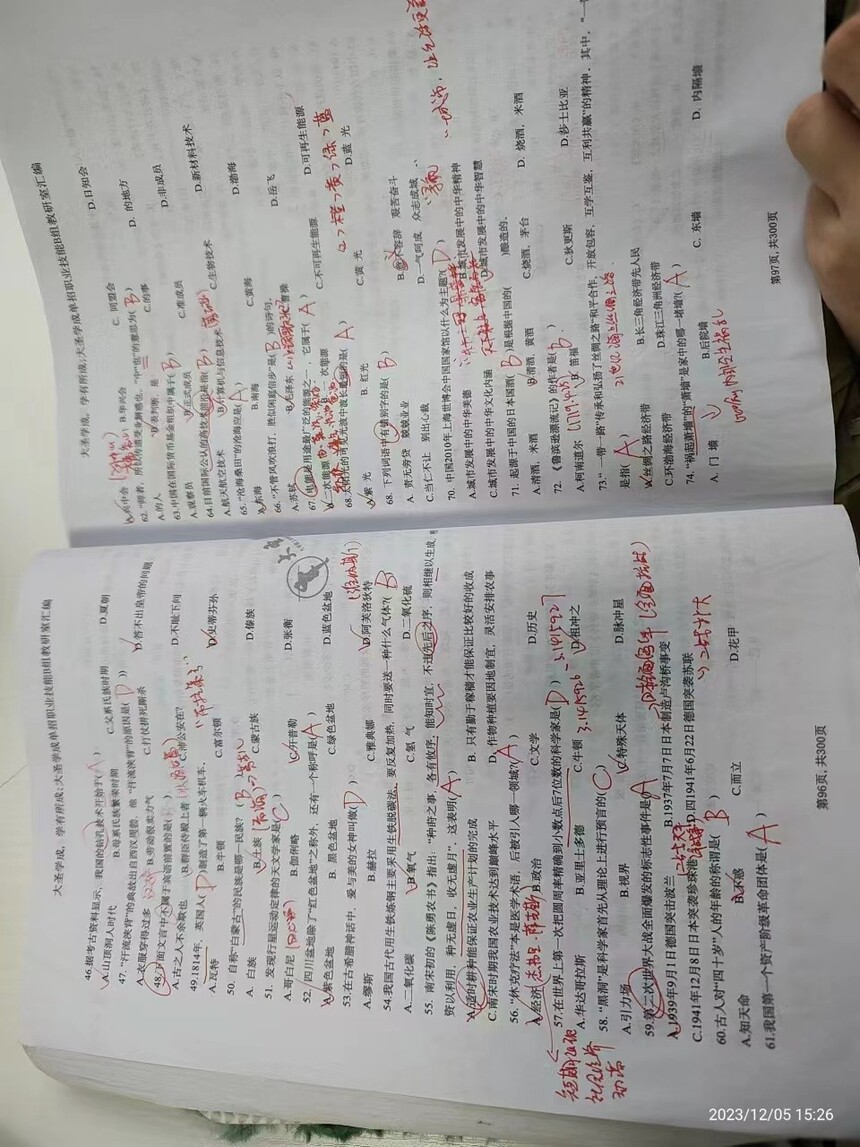 大圣学成，学有所成;大圣学成单招职业技能B组教研室汇编
46.据考古资料显示，我国的钻孔技术开始于( A )
A.山顶洞人时代 B.母系氏族繁荣时期 C.父系氏族时期 D.夏朝
47. “汗流浃背”的典故出自西汉周勃，他“汗流浃背”的原因是( D )
A.衣服穿得过多 B.劳动很卖力气 C.打仗拼死厮杀 D.答不出皇帝的问题
48.下面文言中不属于宾语前置的是( )
A.古之人不余欺也 B.群臣侍殿上者 C.沛公安在? D.不耻下问
49.1814年，英国人( D )制造了第一辆火车机车，
A.瓦特 B.牛顿 C.富尔顿 D.史蒂芬孙
50. 自称“白蒙古”的民族是哪一民族? ( B )
A. 白族 B.土族 C.蒙古族 D.傣族
51. 发现行星运动定律的天文学家是( C )
A.哥白尼 B.伽俐略 C.开普勒 D.张衡
52. 四川盆地除了“红色盆地”之称外，还有一个称呼是( A )
A.紫色盆地 B. 黑色盆地 C.绿色盆地 D.蓝色盆地
53.在古希腊神话中，爱与美的女神叫做( D )
A.缪斯 B.赫拉 C.雅典娜 D.阿芙洛狄特
54.我国古代用生铁炼钢主要采用生铁脱碳法，要反发加热，同时要送一种什么气体?( B
A.二氧化碳 B.氧气 C.氢 气 D.二氧化硫
55. 南宋初的《陈旉农书》指出: “种莳之事，各有攸序，能知时宜，不违先后之序，则相继以生成，
资以利用，种无虚日，收无虚月”，这表明( A )
A.适时耕种能保证农业生产计划的完成 B. 只有勤于稼穑才能保证比较好的收成
C.南宋时期我国农业技术达到巅峰水平 D.作物种植要因地制宜，灵活安排农事
56. “休克疗法”本是医学术语，后被引人哪一领域?( A )
A.经济 B.政治 C.文学 D.历史
57.在世界上第一次把圆周率精确到小数点后7位数的科学家是( D ) 3.1415926~3.1415927
A.华达哥拉斯 B.亚里士多德 C.牛顿 D.祖冲之
58. “黑洞”是科学家首先从理论上进行预言的( C )
A.引力场 B.视界 C.特殊天体 D.脉冲星
59.第二次世界大战全面爆发的标志性事件是 A
A.1939年9月1日德国突击波兰 B.1937年7月7日日本制造卢沟桥事变
C.1941年12月8日日本突袭珍珠港 D.四1941年6月22日德国突袭苏联
60.古人对“四十岁”人的年龄的称谓是( B )
A.知天命 B.不惑 C.而立 D.花甲
61.我国第一个资产阶级革命团体是( A )
第96页, 共300页
大圣学成，学有所成;大圣学成单招职业技能B组教研室汇编
A.兴中会 B.华兴会 C. 同盟会 D.日知会
A.的人 C.的事 D. 的地方
63.中国在国际货币基金组织中属于( B )
A.观察员 B.正式成员 C.准成员 D.非成员
64.目前国际公认的高技术前沿是指( B )
A.航天航空技术 B.计算机与信息技术 C.生物技术 D.新材料技术
65. “沧海桑田”的沧海应是( A )
A.东海 B.南海 C.黄海 D.渤海
66. “不管风吹浪打，胜似闲庭信步”是( B )的诗句。
A.苏轼 B.毛泽东 C.曹操 D.岳飞
67.电能是用途最广泛的能源之一，它属于( A )
A.二次能源 B.一次能源 C.不可再生能源 D.可再生能源
68.太阳光的可见光线中波长最短的是( A )
A.紫 光 B. 红光 C.黄 光 D.蓝 光
68. 下列词语中有错别字的是( B )
A. 责无旁贷 兢兢业业
C.当仁不让 别出心裁 D.一气呵成 众志成城
70. 中国2010年上海世博会中国国家馆以什么为主题?( D )
A.城市发展中的中华美德 B.城市发展中的中华精神
C.城市发展中的中华文化内涵 D.城市发展中的中华智慧
71. 起源于中国的日本国酒( B )是根据中国的( )酿造的。
A.清酒，米酒 B.清酒，黄酒 C.烧酒，茅台 D. 烧酒，米酒
72. 《鲁滨逊漂流记》的作者是( b )
A.柯南道尔 B.笛福 C.狄更斯 D.莎士比亚
73. “一带一路”传承和弘扬了丝绸之路“和平合作，开放包容，互学互鉴，互利共赢”的精神，其中，“一
是指( A )
A.丝绸之路经济带 B.长三角经济带先人民
C.环渤海经济带 D.珠江三角洲经济带
74. “祸起萧墙”的“萧墙”是家中的哪一堵墙?( A )
A. 门 墙 B.后院墙 C. 东墙 D. 内隔墙
第97页, 共300页
2023/12/05 15:26